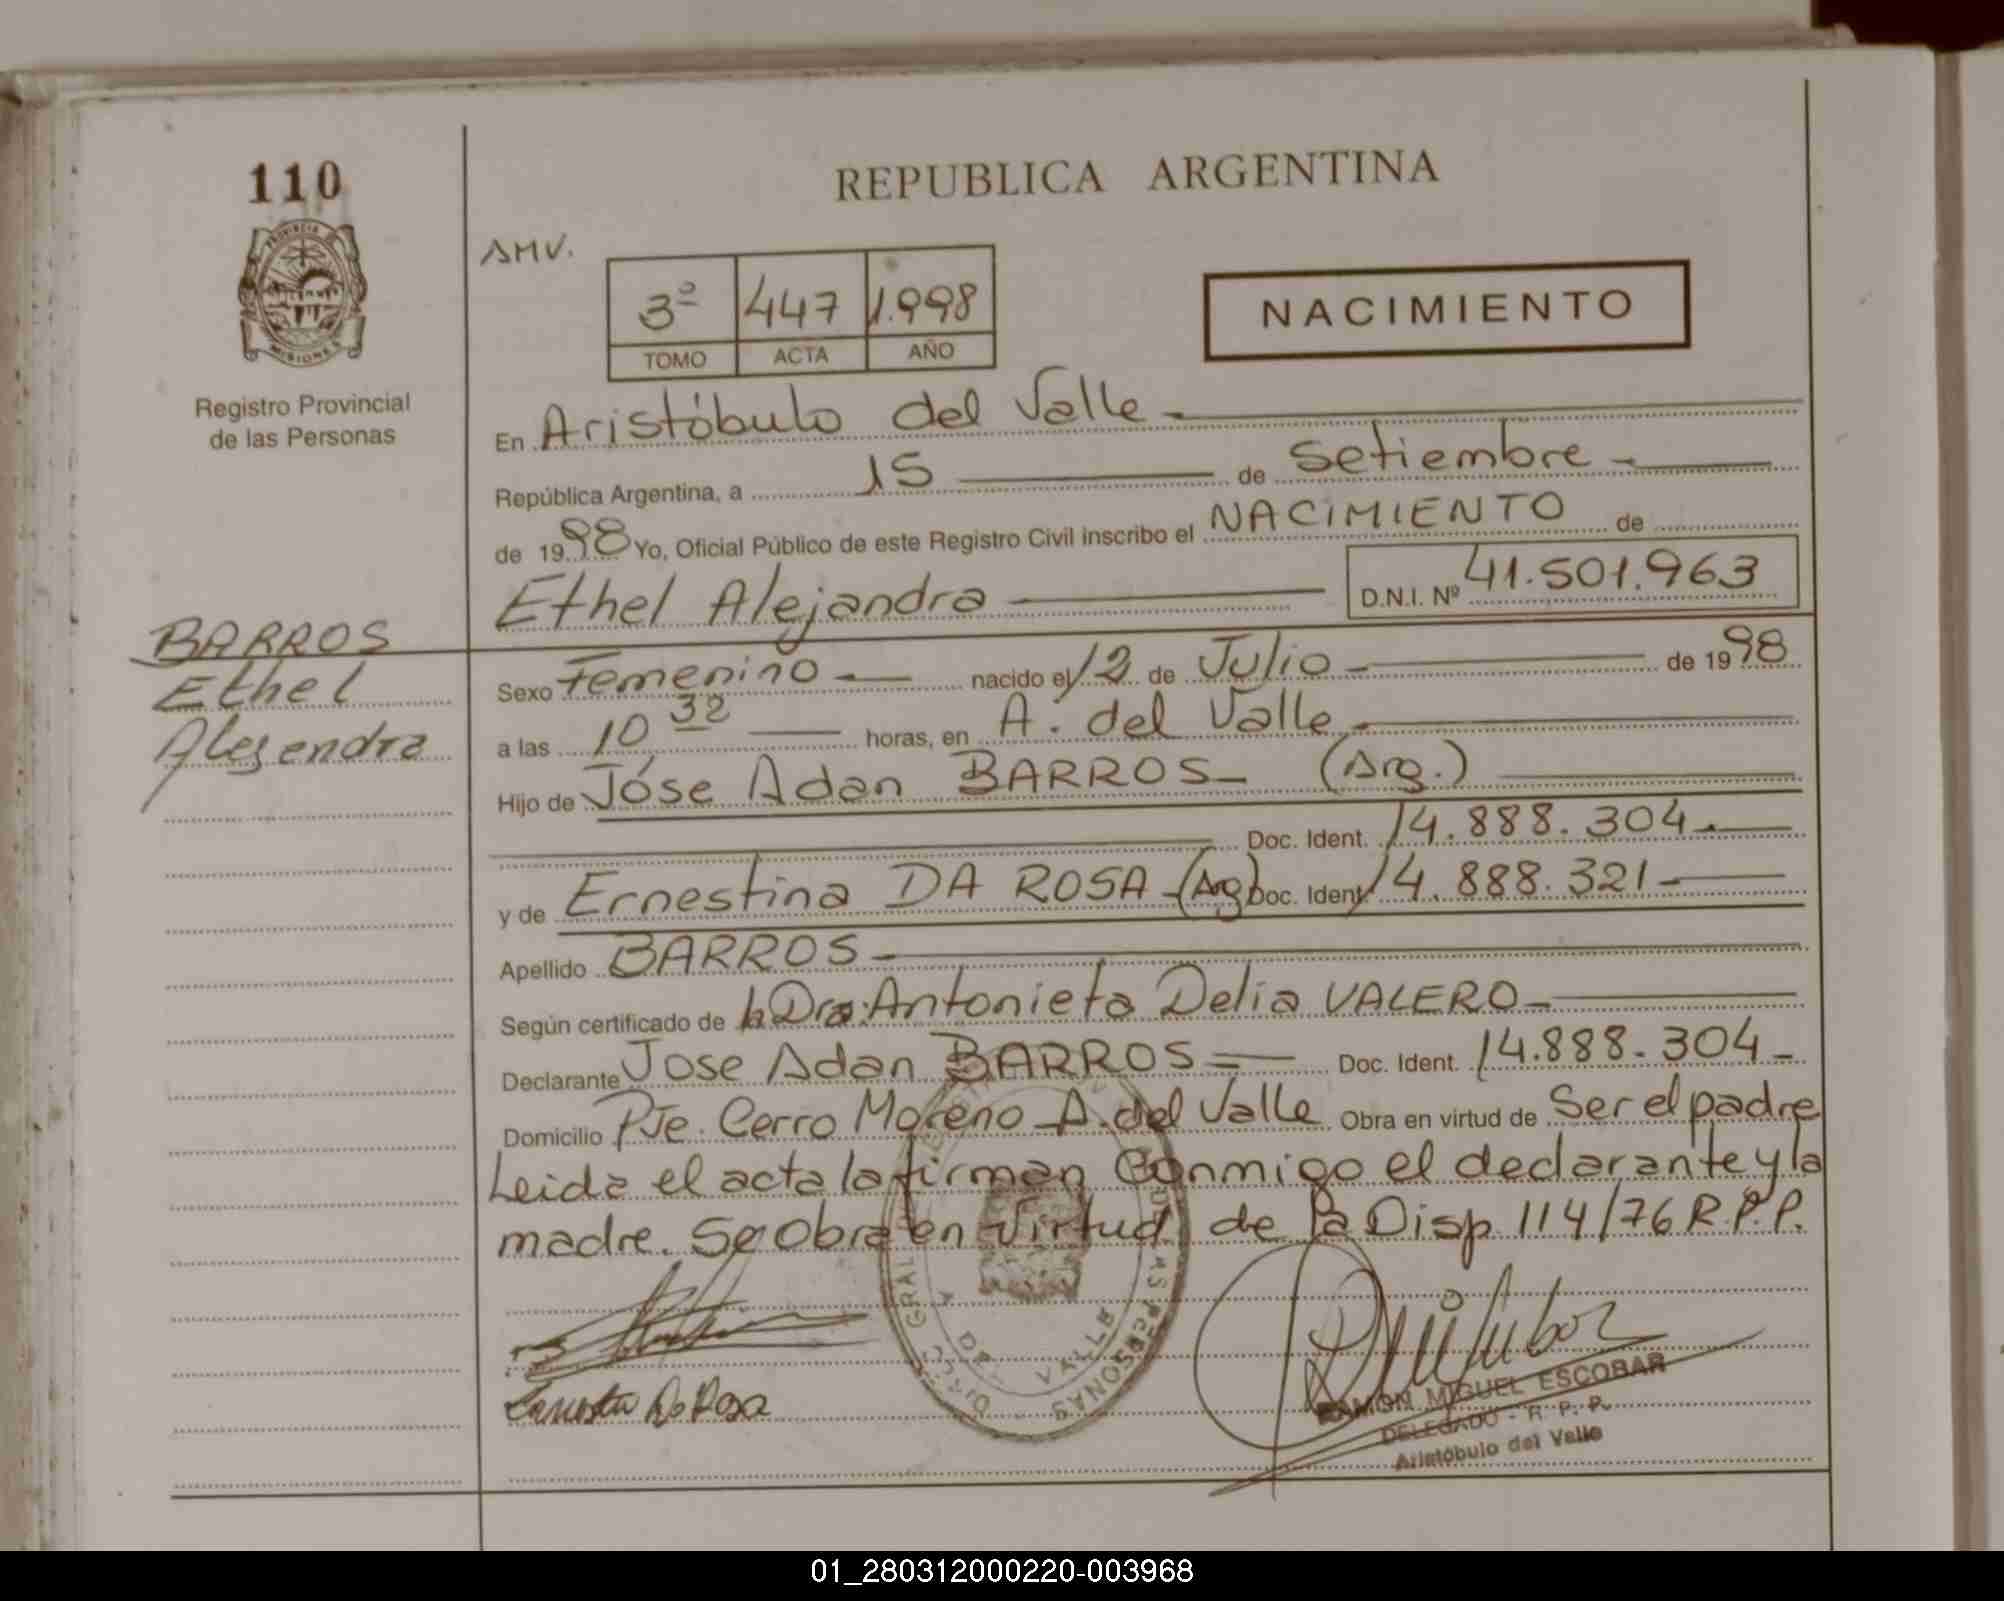 110
REPUBLICA ARGENTINA
PROVINCIA DE
MISIONES
Registro Provincial
de las Personas
AMV.
3º 447 1.998
TOMO ACTA AÑO
NACIMIENTO
En Aristóbulo del Valle
República Argentina, a 15 de Setiembre
de 1998 Yo, Oficial Público de este Registro Civil inscribo el NACIMIENTO de
Ethel Alejandra D.N.I. Nº 41.501.963
BARROS
Ethel
Alejandra
Sexo Femenino nacido el 12 de Julio de 1998
a las 10 32 horas, en A. del Valle
Hijo de Jóse Adan BARROS (Arg.)
Doc. Ident. 14.888.304
y de Ernestina DA ROSA (Arg) Doc. Ident. 14.888.321
Apellido BARROS
Según certificado de la Dra: Antonieta Delia VALERO
Declarante Jose Adan BARROS Doc. Ident. 14.888.304
Domicilio Pje. Cerro Moreno A. del Valle Obra en virtud de Ser el padre
Leida el acta la firman Conmigo el declarante y la
madre. Se Obra en Virtud de la Disp. 114/76 R.P.P.
RAMON MIGUEL ESCOBAR
DELEGADO - R. P. P.
Aristóbulo del Valle
01_280312000220-003968